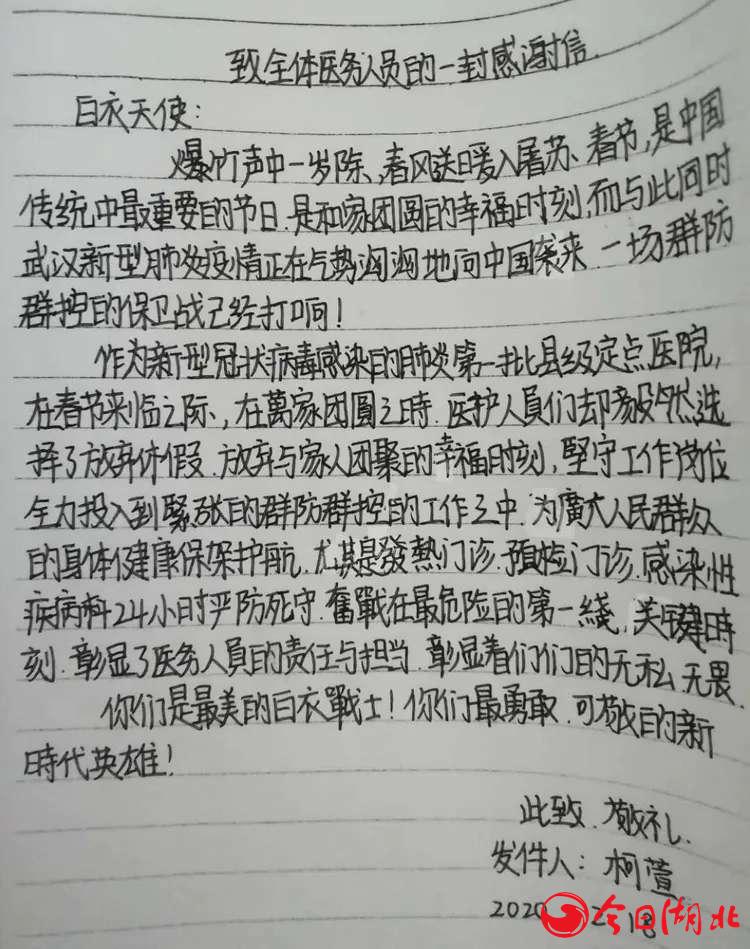 致全体医务人员的一封感谢信.
白衣天使:
爆竹声中一岁除、春风送暖入屠苏、春节,是中国
传统中最重要的节日.是和家团圆的幸福时刻.而与此同时
武汉新型肺炎疫情正在气势汹汹地向中国袭来.一场群防
群控的保卫战已经打响!
作为新型冠状病毒感染的肺炎第一批县级定点医院,
在春节来临之际、在萬家团圓之時.医护人員们却毅然选
择了放弃休假.放弃与家人团聚的幸福时刻,堅守工作岗位
全力投入到緊张的群防群控的工作之中.为廣大人民群众
的身体健康保架护航.尤其是發熱门诊.预检门诊.感染性
疾病科24小时严防死守.奮戰在最危险的第一綫,关键時
刻.彰显了医务人員的责任与担当.彰显着们们的无私无畏.
你们是最美的白衣戰士!你们最勇敢.可敬的新
時代英雄!
此致.敬礼.
发件人:柯萱
2020
今日湖北